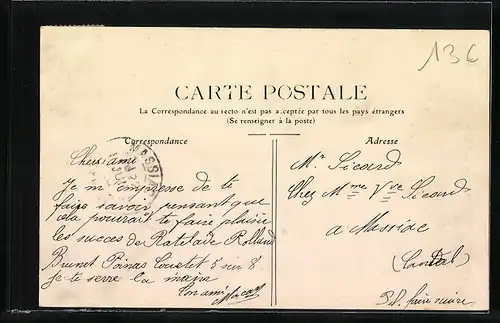 13€
CARTE POSTALE
La Correspondance au recto n'est pas acceptée par tous les pays étrangers
(Se renseigner à la poste)
Correspondance
Adresse
MASSIAC
Cher ami
Je m'empresse de te
faire savoir pensant que
cela pourrait te faire plaisir
les succes de Ratelade Rolland
Brunet Poinas Coustet 5 sur 8
je te serre la main
Ton ami
Mr Sicard
Chez Mme Vve Sicard
a Massiac
(Cantal)
P.S. faire suivre